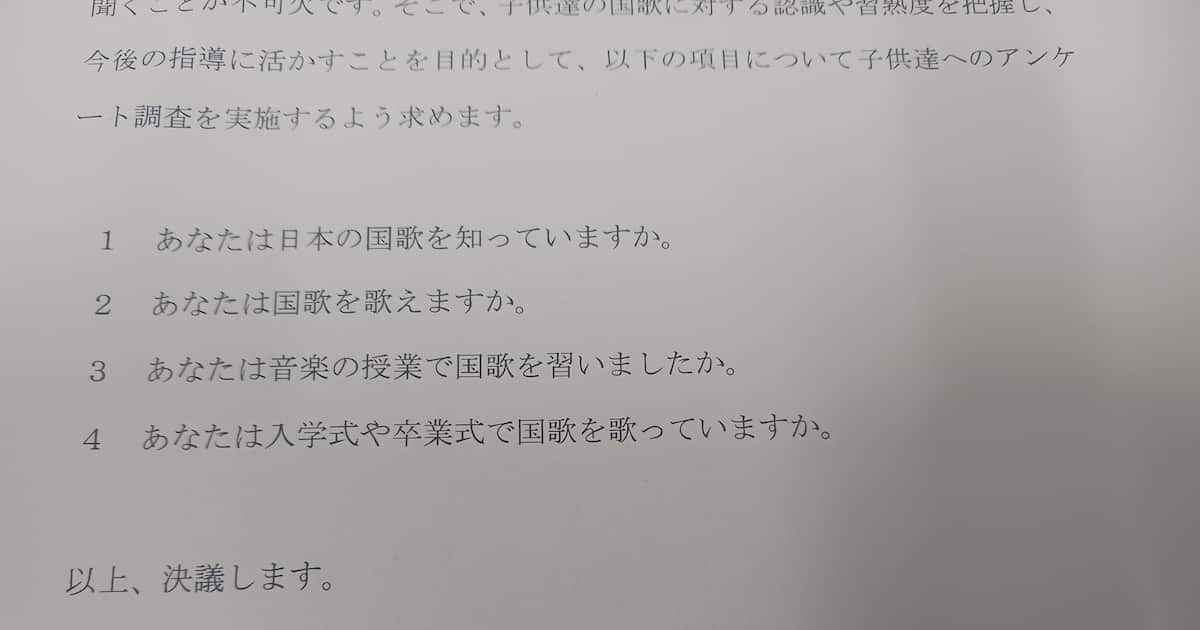 聞くことが不可欠です。そこで、子供達の国歌に対する認識や習熟度を把握し、
今後の指導に活かすことを目的として、以下の項目について子供達へのアンケ
ート調査を実施するよう求めます。
1 あなたは日本の国歌を知っていますか。
2 あなたは国歌を歌えますか。
3 あなたは音楽の授業で国歌を習いましたか。
4 あなたは入学式や卒業式で国歌を歌っていますか。
以上、決議します。